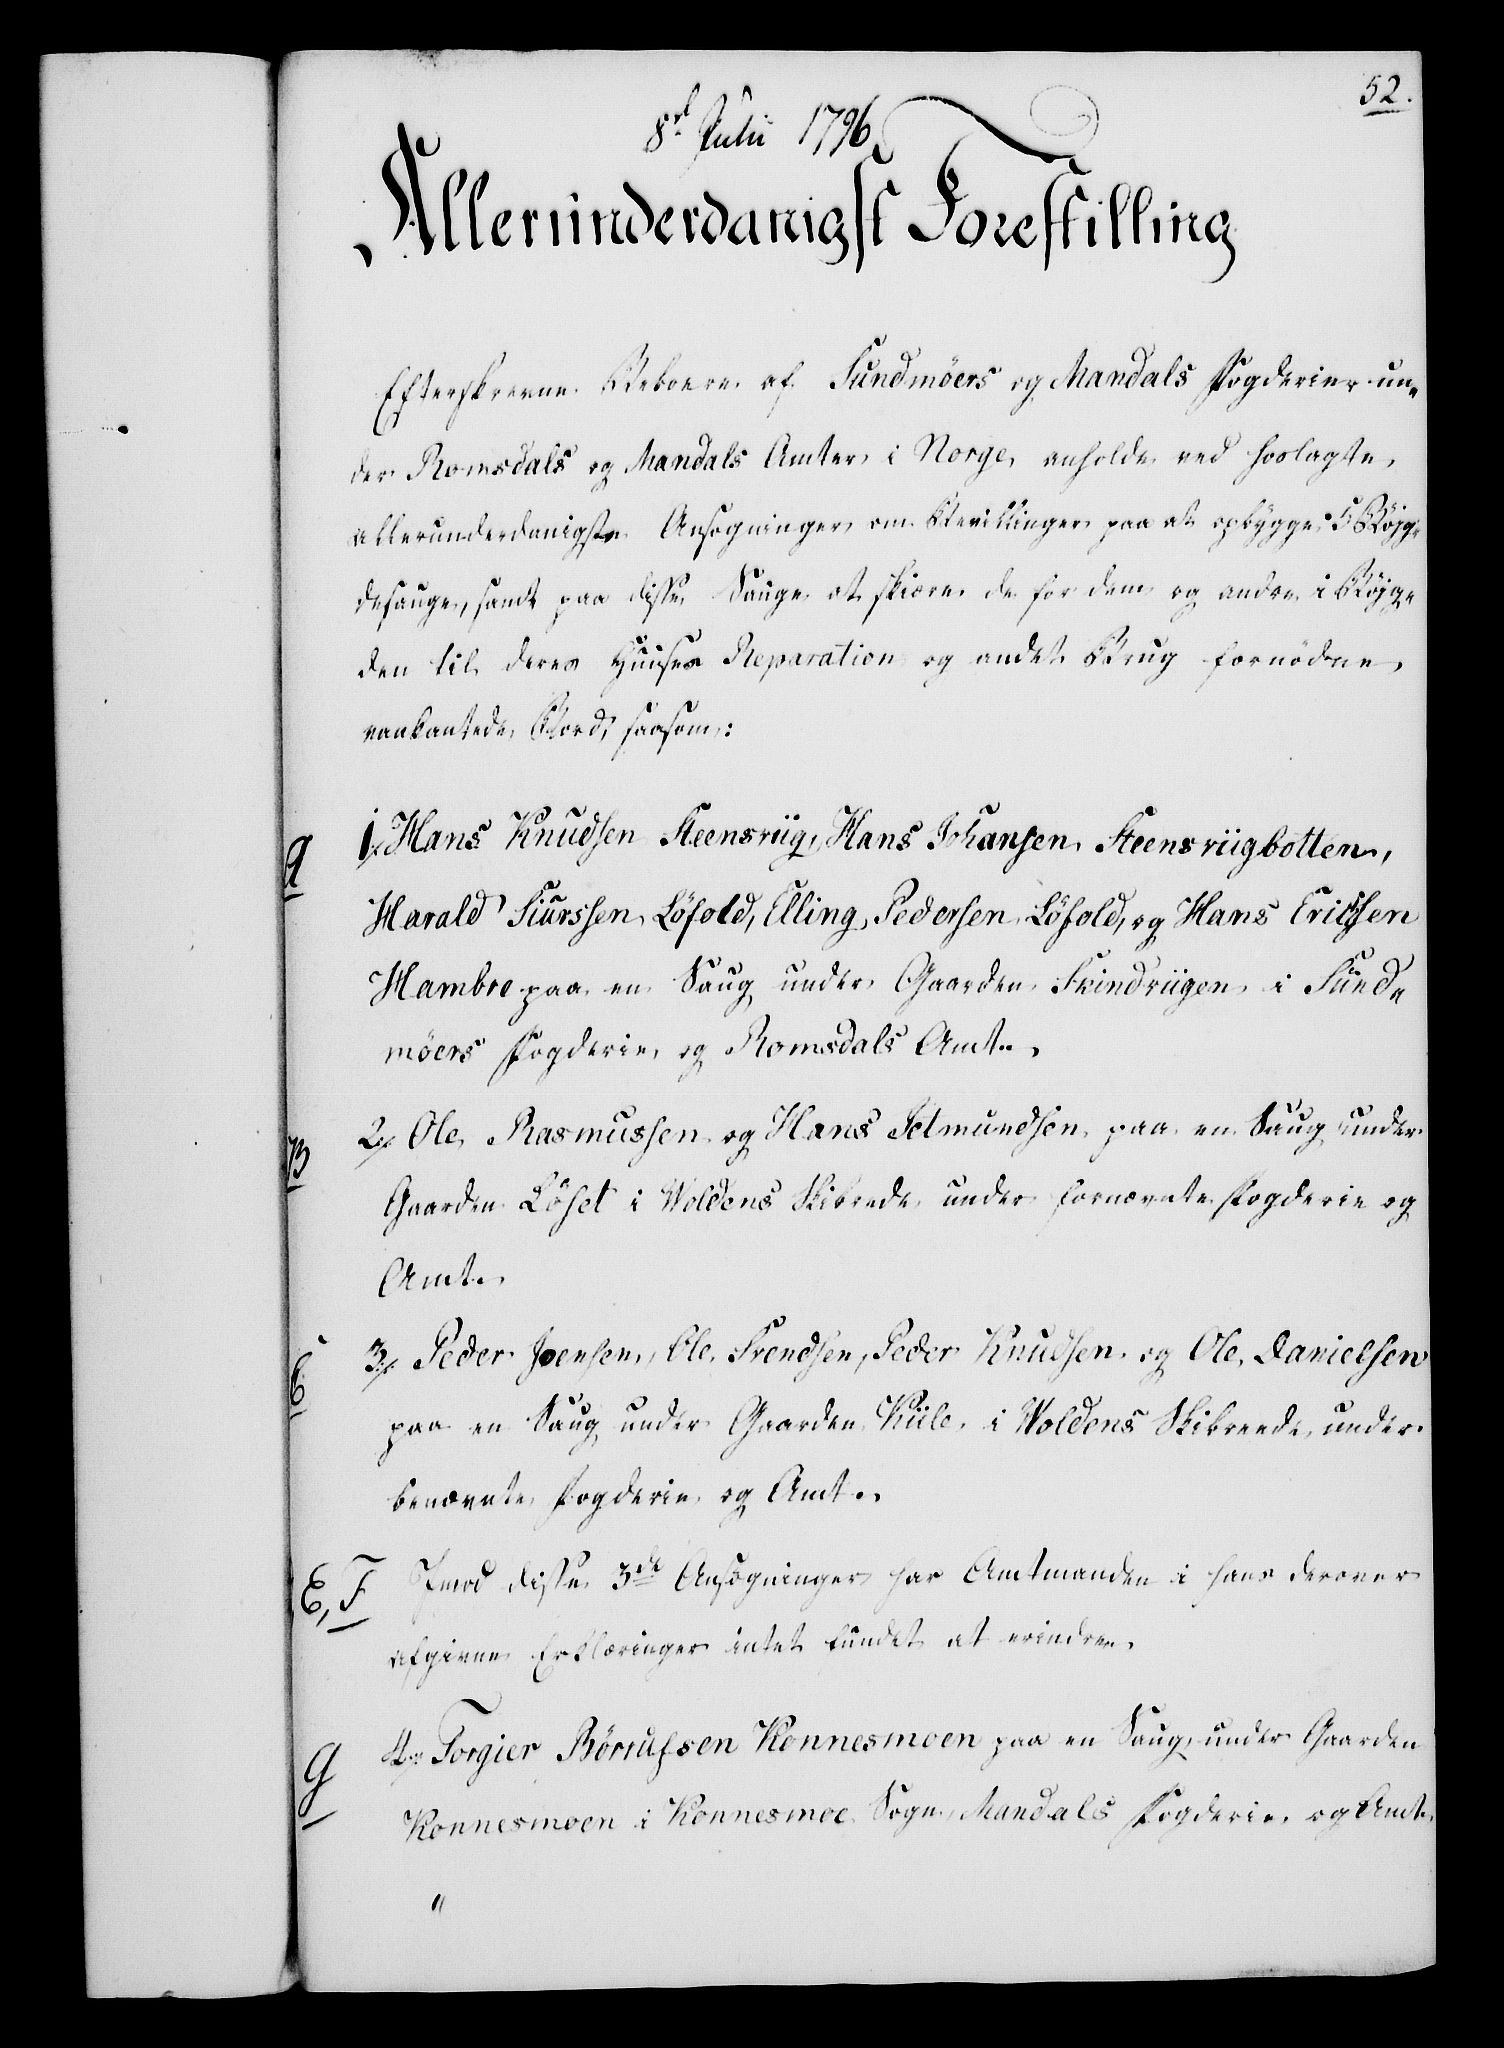 52.
8d Julii 1796
Allerunderdanigst Forestilling
Efterskrevne Beboere af Sundmöers og Mandals Fogderier un-
der Romsdals og Mandals Amter i Norge, anholde ved hoslagte
allerunderdanigste Ansøgninger om Bevillinger paa at opbygge 5 Bøjge-
desauge, samt paa disse Sauge at skiære de for dem og andre i Bøjge
den til deres Huuses Reparation og andet Brug fornödne
vankantede Bord, saasom:
A
1/ Hans Knudsen Steensriig, Hans Johansen Steensriigbotten,
Harald Siurssen Löfold, Elling Pedersen Löfold, og Hans Erichsen
Hambre paa en Saug under Gaarden Skindriigen i Sund-
möers Fogderie og Romsdals Amt.
B
2/ Ole Rasmussen og Hans Jetmundsen paa en Saug under
Gaarden Löset i Woldens Skibrede under fornævnte Fogderie og
Amt.
C
3/ Peder Joensen, Ole Svendsen, Peder Knudsen og Ole Danielsen
paa en Saug under Gaarden Kiile i Woldens Skibreede, under
benævnte Fogderie og Amt.
E, F
Imod disse 3de Ansøgninger har Amtmanden i hans derover
afgivne Erklæringer intet fundet at erindre.
G
4/ Torgier Börrufsen Konnesmoen paa en Saug under Gaarden
Konnesmoen i Konnesmoe Sogn, Mandals Fogderie og Amt.
"